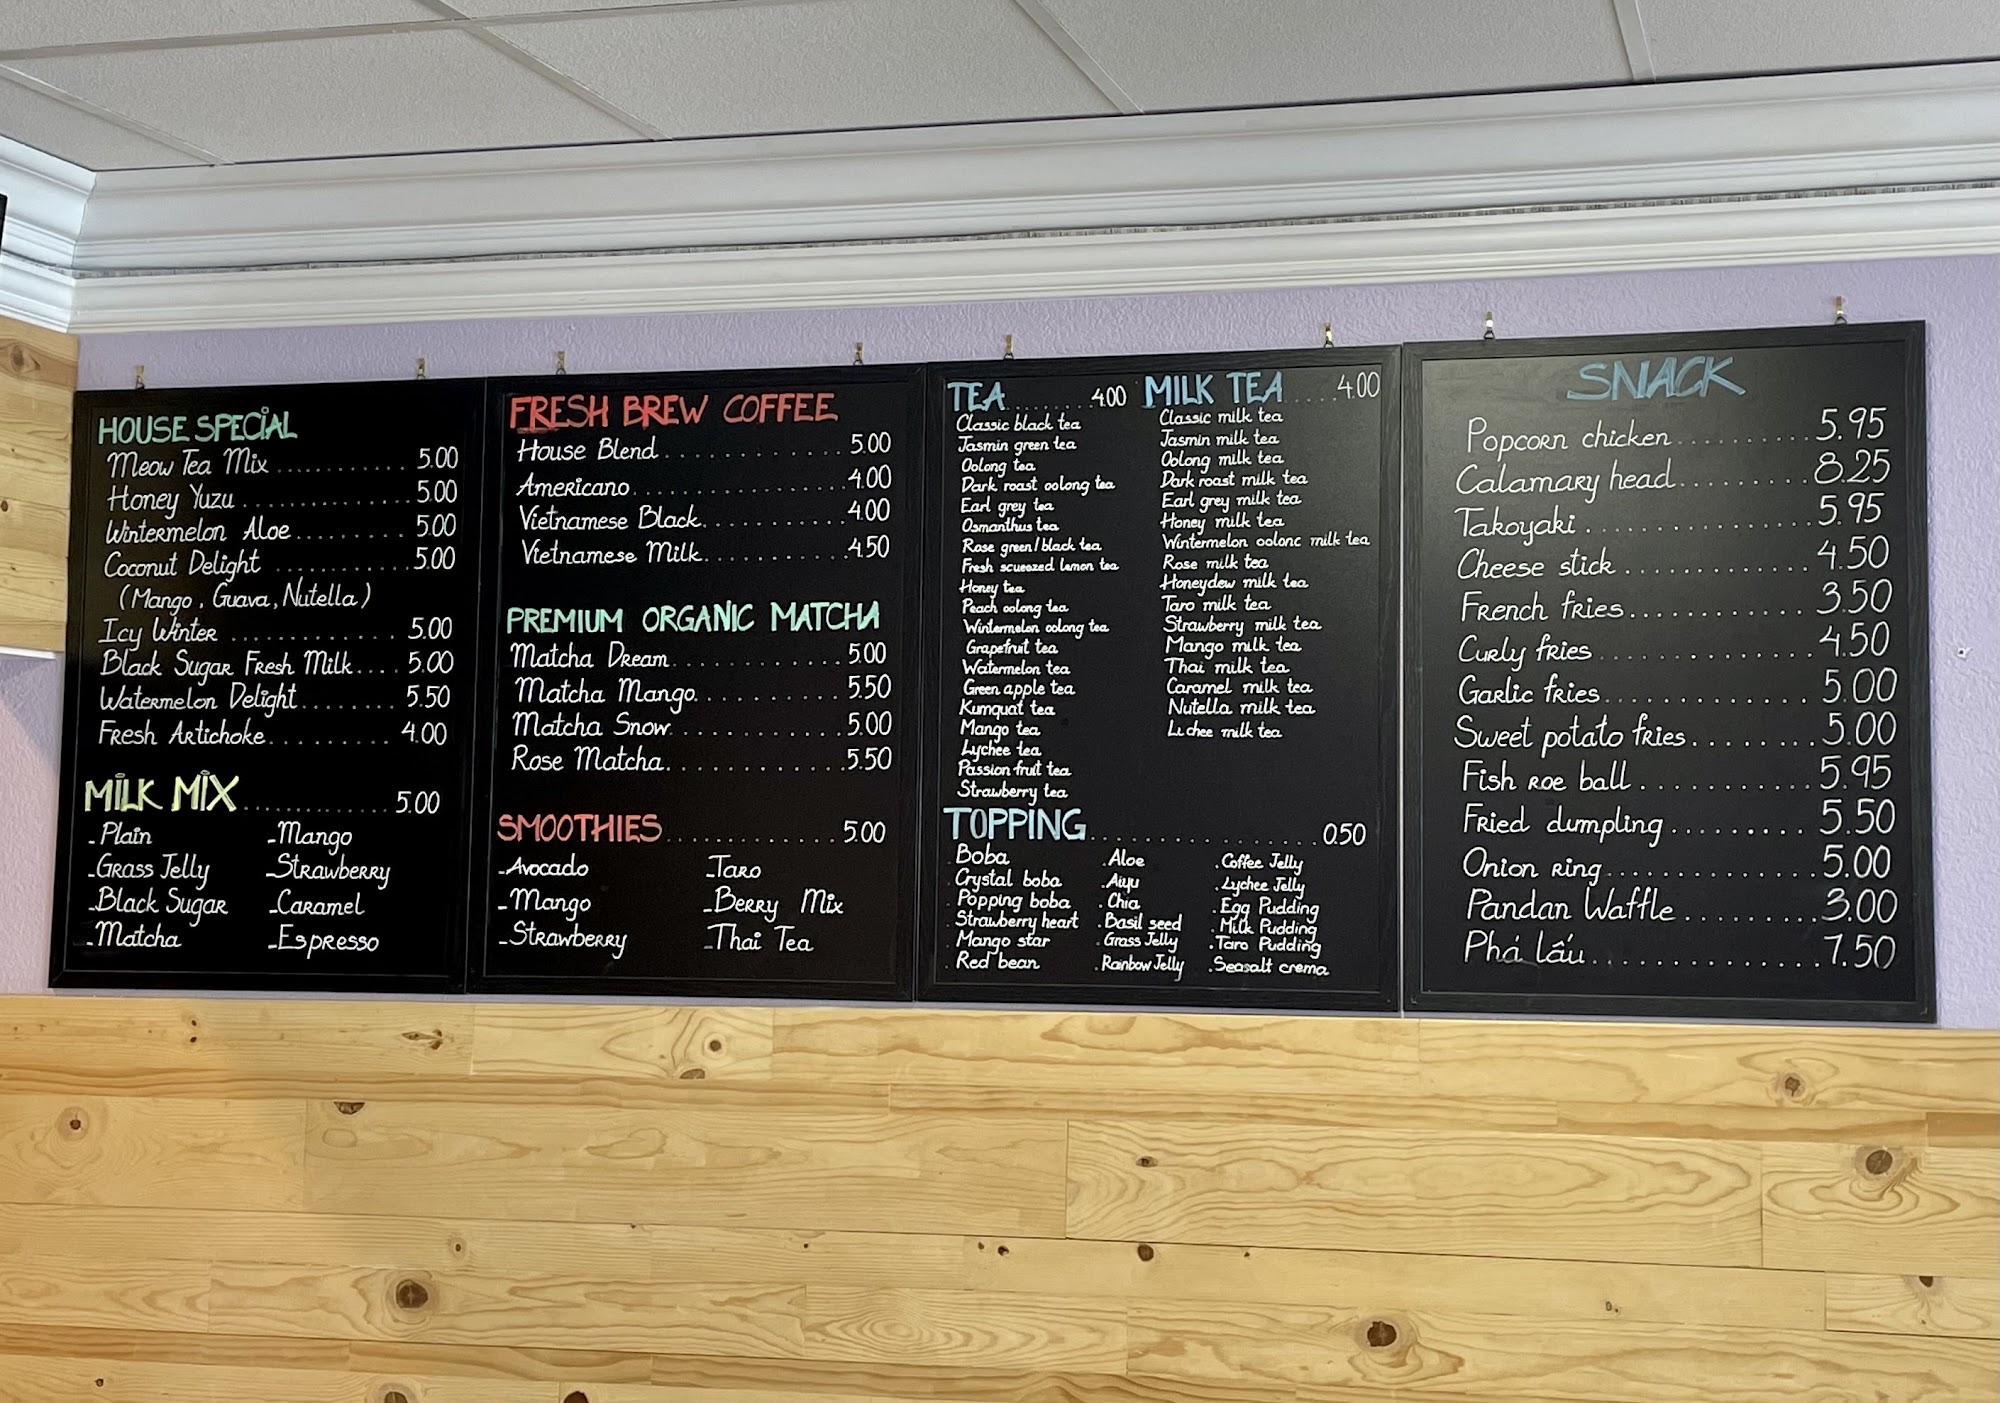 HOUSE SPECIAL
Meow Tea Mix ............... 5.00
Honey Yuzu ............... 5.00
Wintermelon Aloe ............... 5.00
Coconut Delight ............... 5.00
(Mango, Guava, Nutella)
Icy Winter ............... 5.00
Black Sugar Fresh Milk .... 5.00
Watermelon Delight ........ 5.50
Fresh Artichoke ......... 4.00
MILK MIX ............... 5.00
-Plain
-Grass Jelly
-Black Sugar
-Matcha
-Mango
-Strawberry
-Caramel
-Espresso
FRESH BREW COFFEE
House Blend ............... 5.00
Americano ............... 4.00
Vietnamese Black ............ 4.00
Vietnamese Milk ............ 4.50
PREMIUM ORGANIC MATCHA
Matcha Dream ............ 5.00
Matcha Mango ............ 5.50
Matcha Snow ............ 5.00
Rose Matcha ............ 5.50
SMOOTHIES ............... 5.00
-Avocado
-Mango
-Strawberry
-Taro
-Berry Mix
-Thai Tea
TEA ........ 4.00
Classic black tea
Jasmin green tea
Oolong tea
Dark roast oolong tea
Earl grey tea
Osmanthus tea
Rose green/black tea
Fresh scueezed lemon tea
Honey tea
Peach oolong tea
Wintermelon oolong tea
Grapefruit tea
Watermelon tea
Green apple tea
Kumquat tea
Mango tea
Lychee tea
Passion fruit tea
Strawberry tea
MILK TEA ..... 4.00
Classic milk tea
Jasmin milk tea
Oolong milk tea
Dark roast milk tea
Earl grey milk tea
Honey milk tea
Wintermelon oolonc milk tea
Rose milk tea
Honeydew milk tea
Taro milk tea
Strawberry milk tea
Mango milk tea
Thai milk tea
Caramel milk tea
Nutella milk tea
Lichee milk tea
TOPPING ............... 0.50
. Boba
. Crystal boba
. Popping boba
. Strawberry heart
. Mango star
. Red bean
. Aloe
. Aiyu
. Chia
. Basil seed
. Grass Jelly
. Rainbow Jelly
. Coffee Jelly
. Lychee Jelly
. Egg Pudding
. Milk Pudding
. Taro Pudding
. Seasalt crema
SNACK
Popcorn chicken ............ 5.95
Calamary head ............ 8.25
Takoyaki ............... 5.95
Cheese stick ............ 4.50
French fries ............ 3.50
Curly fries ............... 4.50
Garlic fries ............ 5.00
Sweet potato fries ........ 5.00
Fish roe ball ............ 5.95
Fried dumpling ......... 5.50
Onion ring ............... 5.00
Pandan Waffle ......... 3.00
Phá lấu ............... 7.50